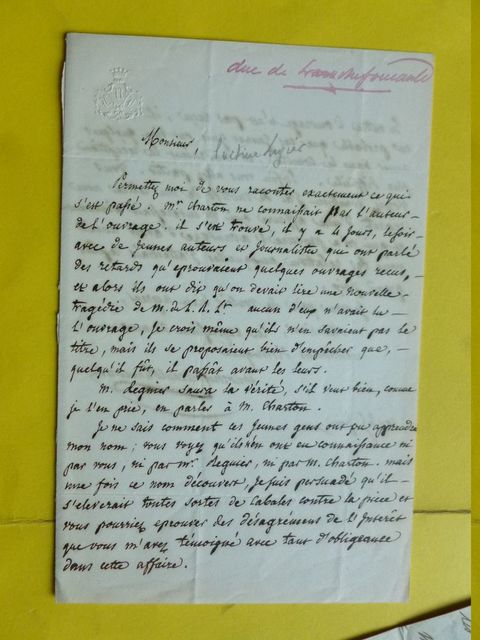 duc de
Monsieur,
Permettez moi de vous raconter exactement ce qui
s'est passé. Mr. Charton ne connaissait pas l'auteur
de l'ouvrage. il s'est trouvé, il y a 4 jours, le soir
avec de jeunes auteurs et journalistes qui ont parlé
des retards qu'eprouvaient quelques ouvrages reçus, -
et alors ils ont dit qu'on devait lire une nouvelle
tragédie de M. de L. aucun d'eux n'avait lu
L'ouvrage, Je crois même qu'ils n'en savaient pas le
titre, mais ils se proposaient bien d'empêcher que, -
quelqu'il fût, il passât avant les leurs.
M. Regnier saura la vérité, s'il veut bien, comme
je l'en prie, en parler à M. Charton.
Je ne sais comment ces jeunes gens ont pu apprendre
mon nom; vous voyez qu'ils n'en ont eu connaissance ni
par vous, ni par Mr. Regnier, ni par M. Charton. mais
une fois ce nom découvert, je suis persuadé qu'il
s'eleverait toutes sortes de cabales contre la piece et
vous pourriez eprouver des désagrémens de l'Interêt
que vous m'avez témoigné avec tant d'obligeance
dans cette affaire.